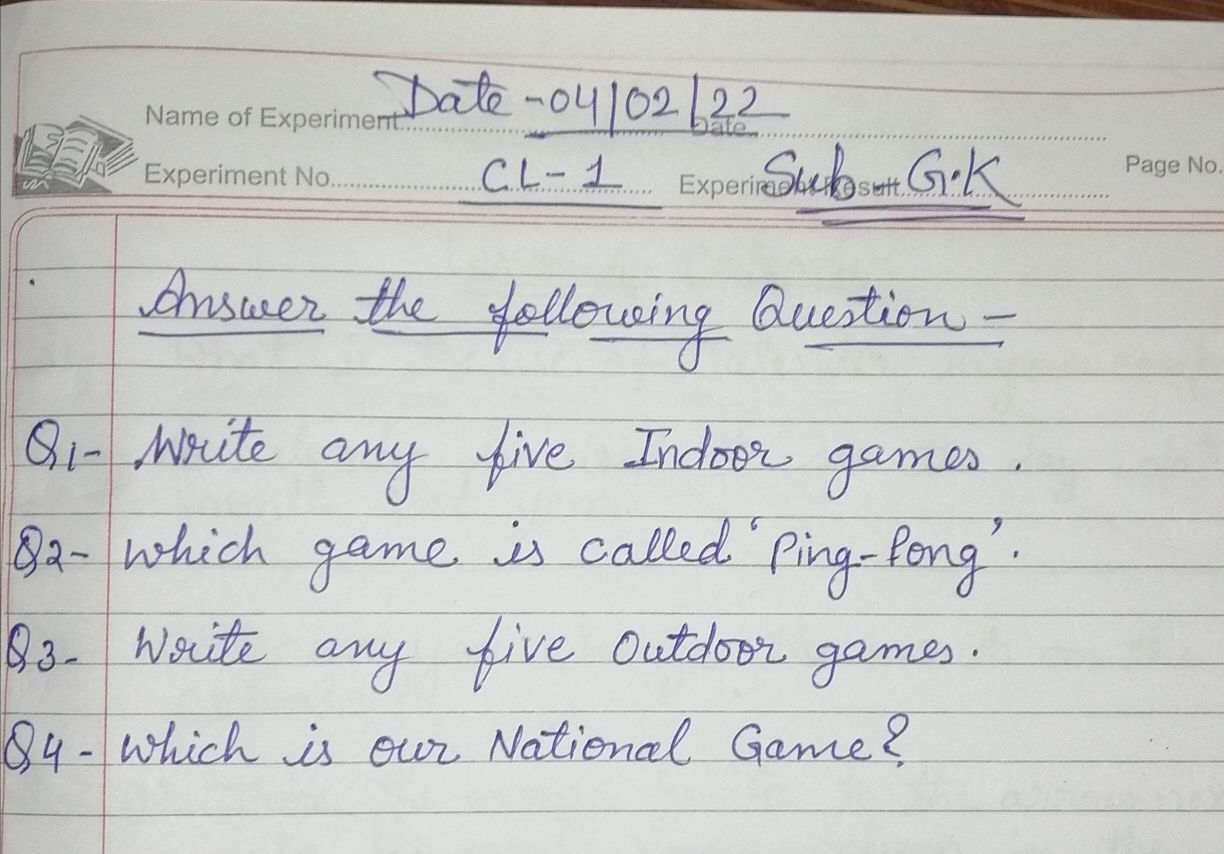 Name of Experiment Date - 04/02/22 Date
Experiment No. CL-1 Experiment Result Sub - G.K Page No.
Answer the following Question -
Q1- Write any five Indoor games.
Q2- which game is called 'Ping-Pong'.
Q3- Write any five Outdoor games.
Q4- which is our National Game?